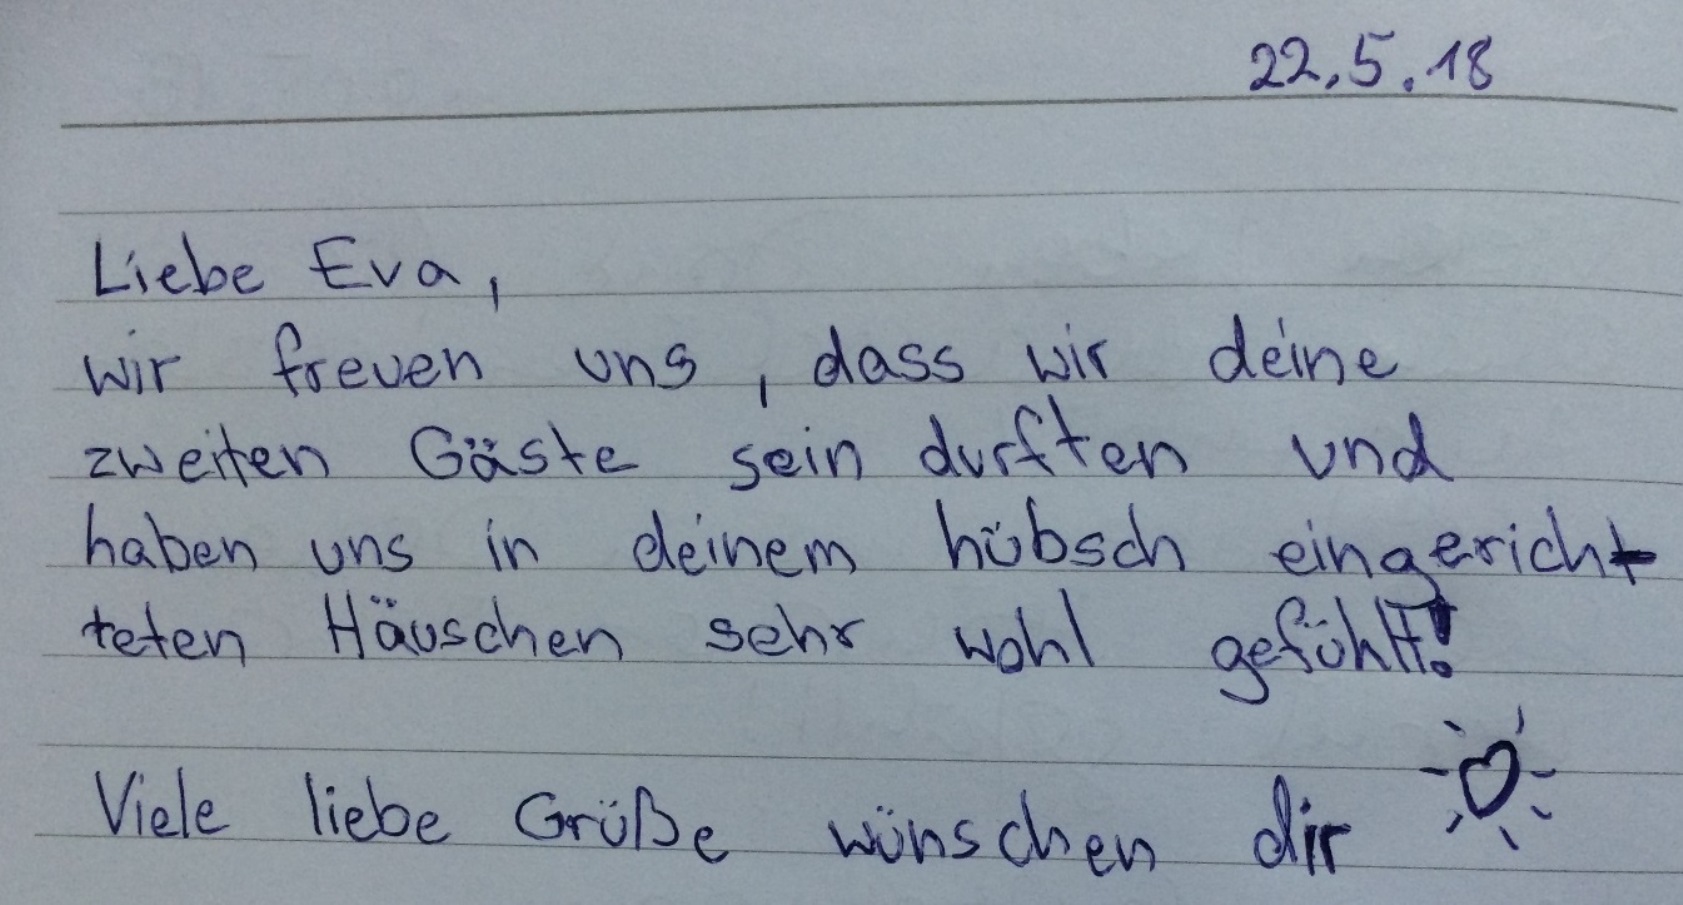 22.5.18
Liebe Eva,
wir freuen uns, dass wir deine
zweiten Gäste sein durften und
haben uns in deinem hübsch eingericht
teten Häuschen sehr wohl gefühlt!
Viele liebe Grüße wünschen dir